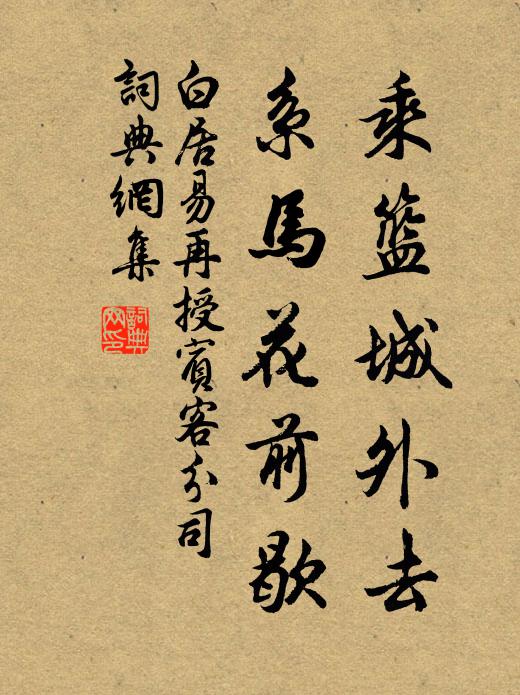 乘籃城外去
系馬花前歇
白居易再授賓客分司
詞典網集
詞典网印